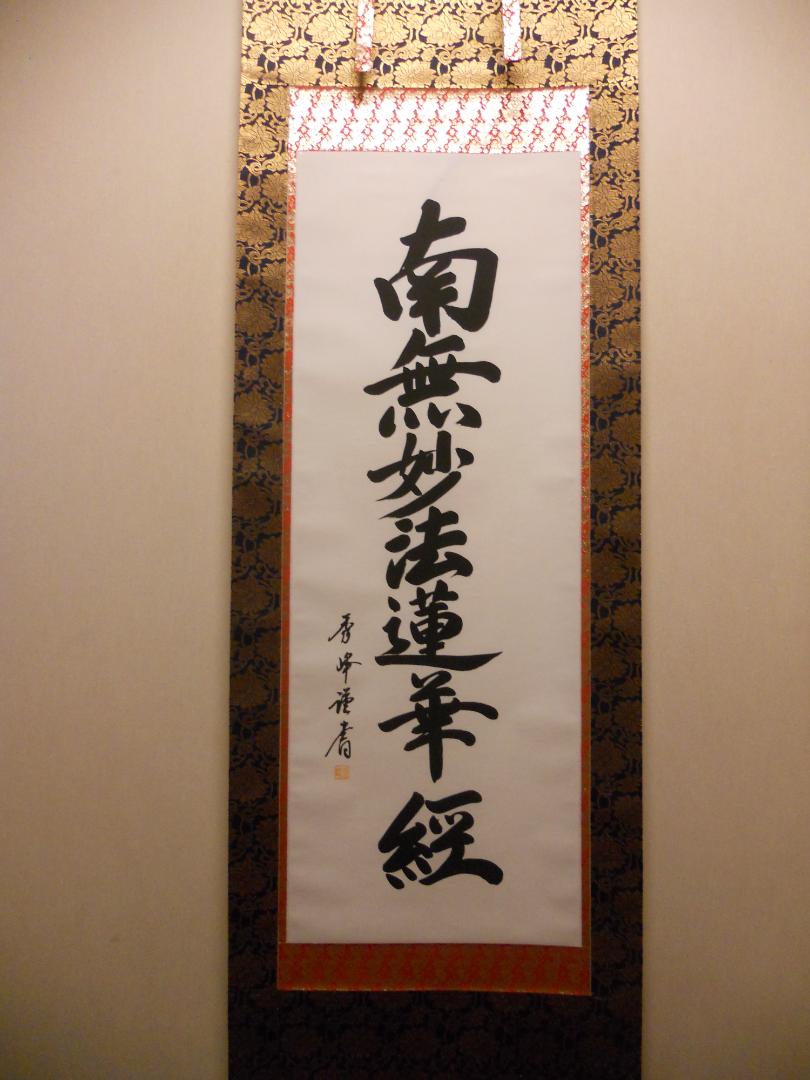 南無妙法蓮華經
秀峰謹書